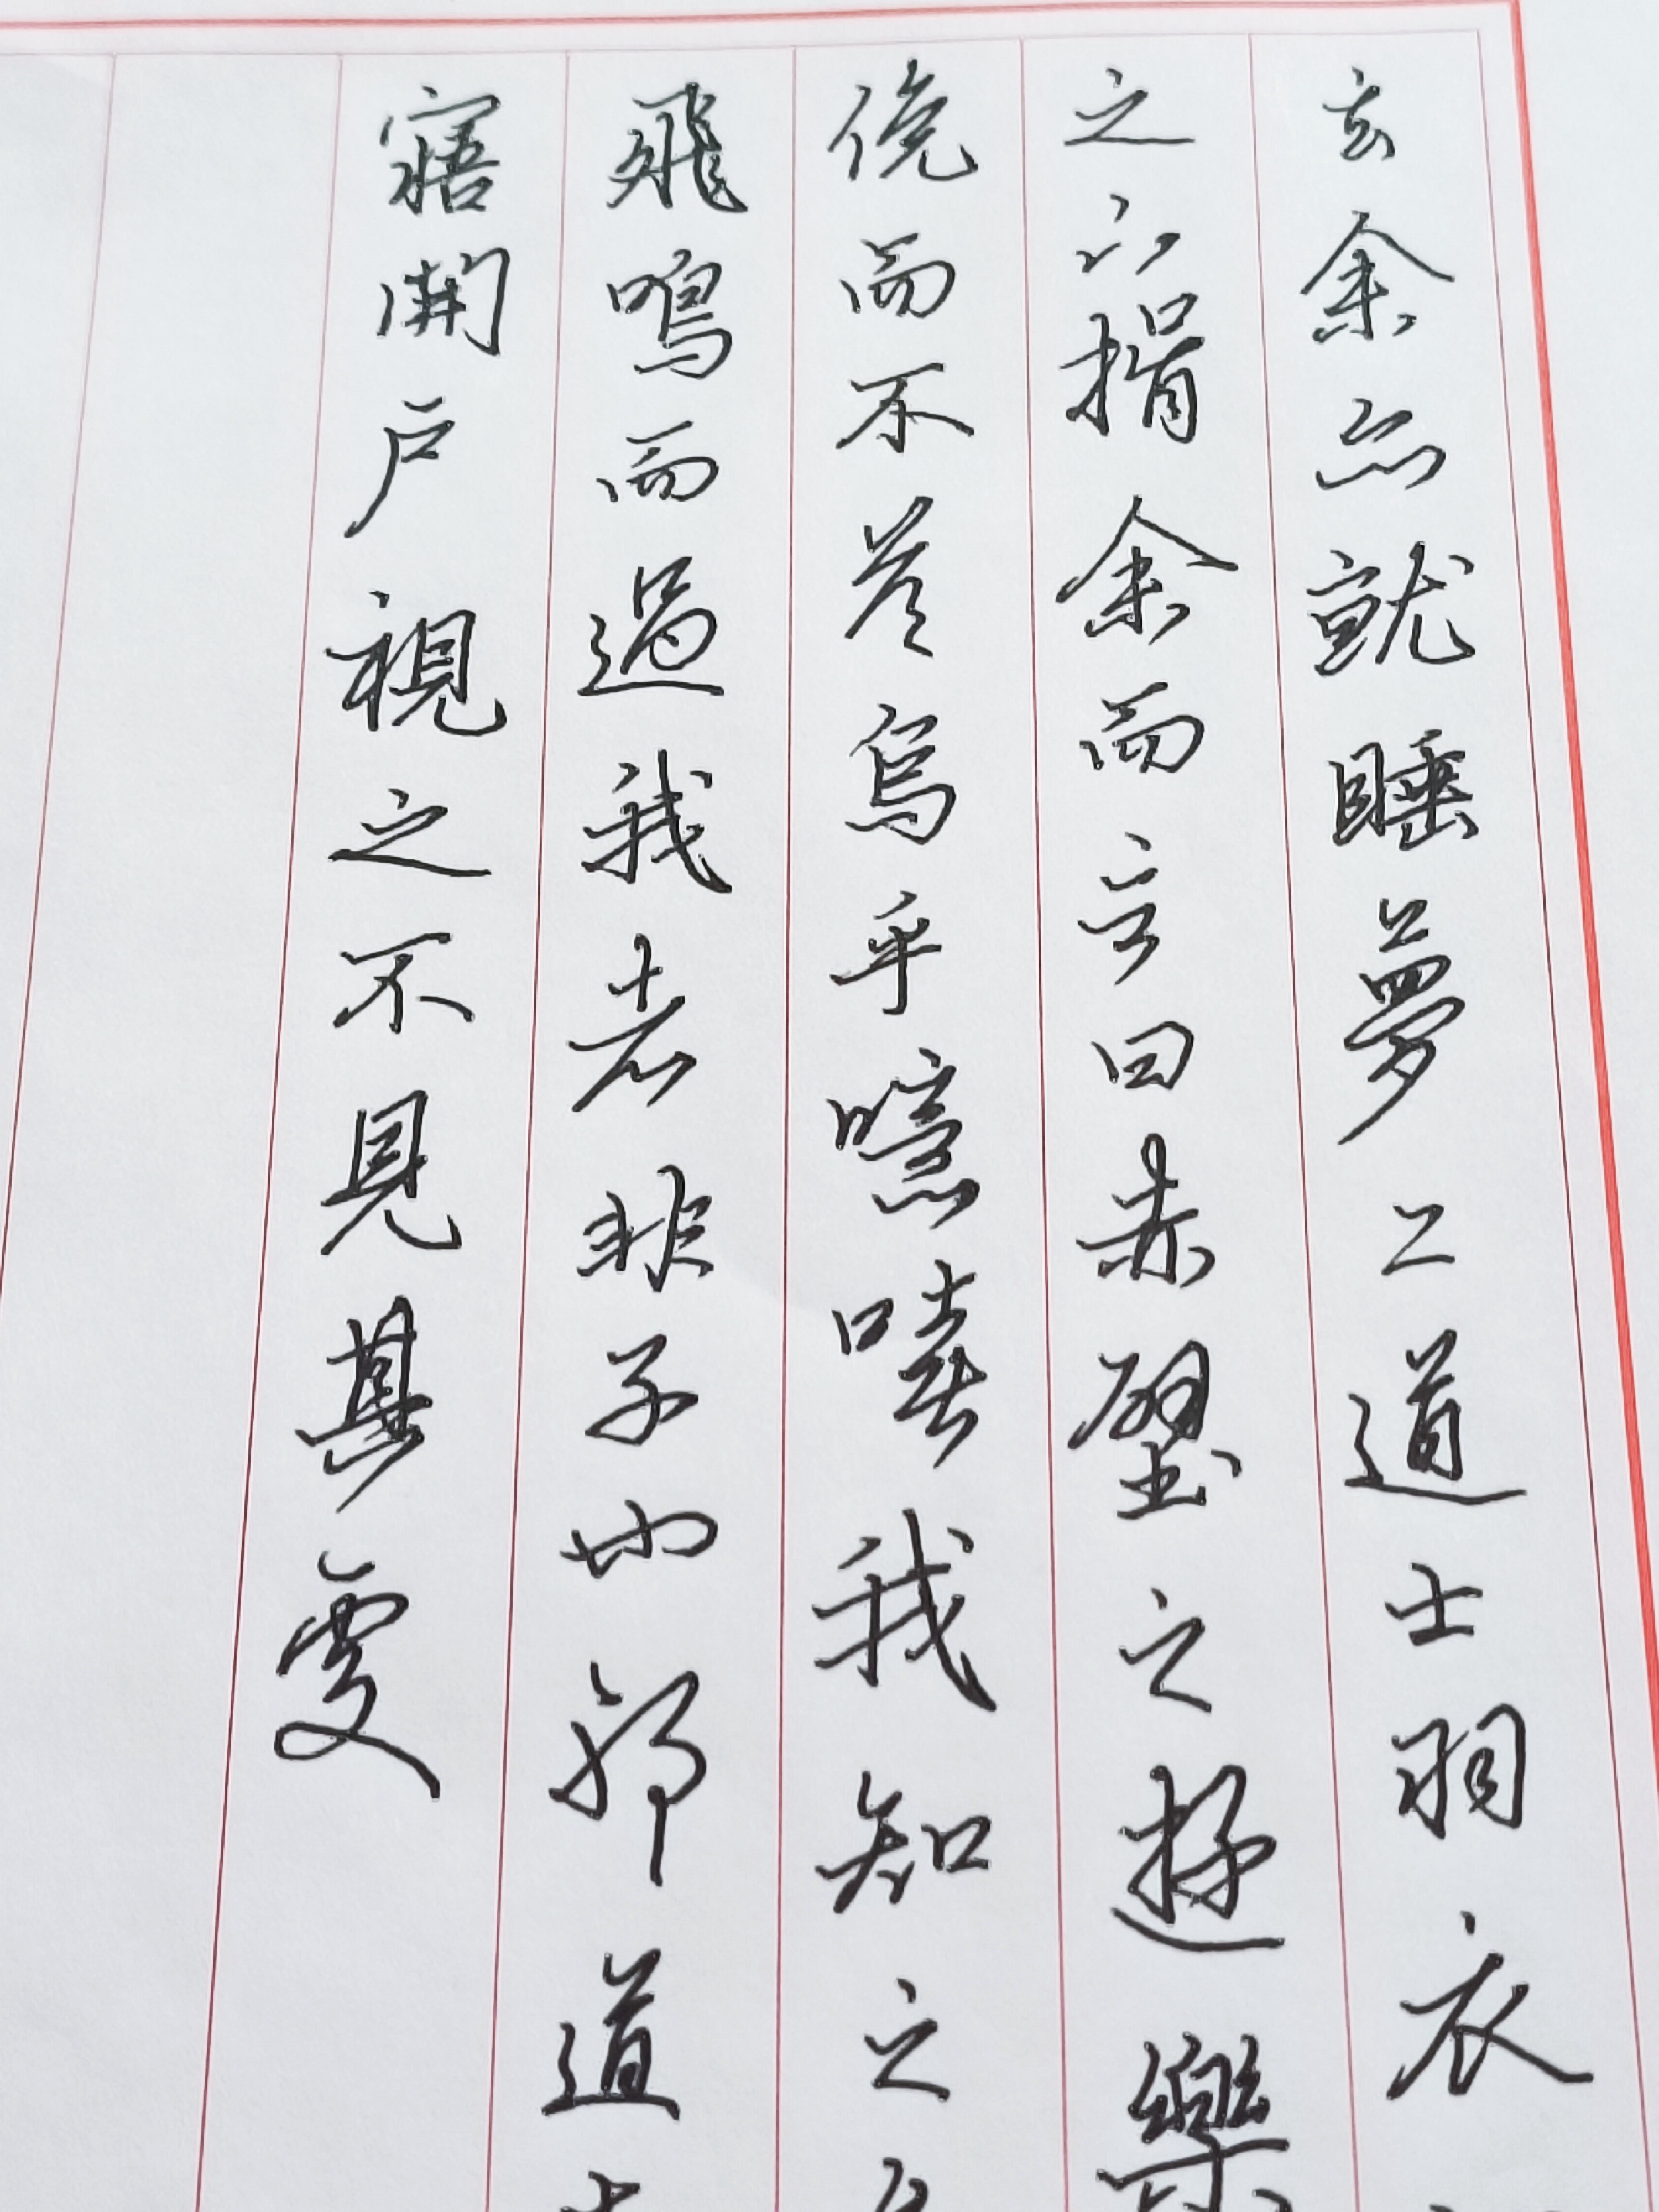 去余亦就睡夢二道士羽衣
之下揖余而言曰赤壁之遊樂
俛而不答烏乎噫嘻我知之
飛鳴而過我者非子也邪道
寤開戶視之不見其處